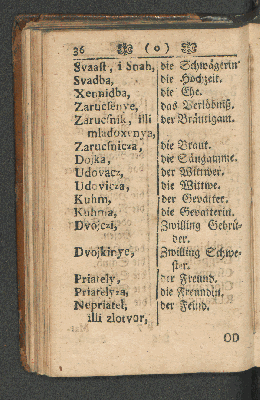 36 ( o )
Svaast, i Snah, die Schwägerin
Svadba, die Hochzeit.
Xennidba, die Ehe.
Zarucsenye, das Verlöbniß.
Zarucsnik, illi der Bräutigam.
mladoxenya,
Zarucsnicza, die Braut.
Dojka, die Säugamme.
Udovacz, der Wittwer.
Udovicza, die Wittwe.
Kuhm, der Gevatter.
Kuhma, die Gevatterin.
Dvojczi, Zwilling Gebrü-
der.
Dvojkinye, Zwilling Schwe-
ster.
Priately, der Freund.
Priatelyza, die Freundin.
Nepriatel, der Feind.
illi zlotvor,
OD